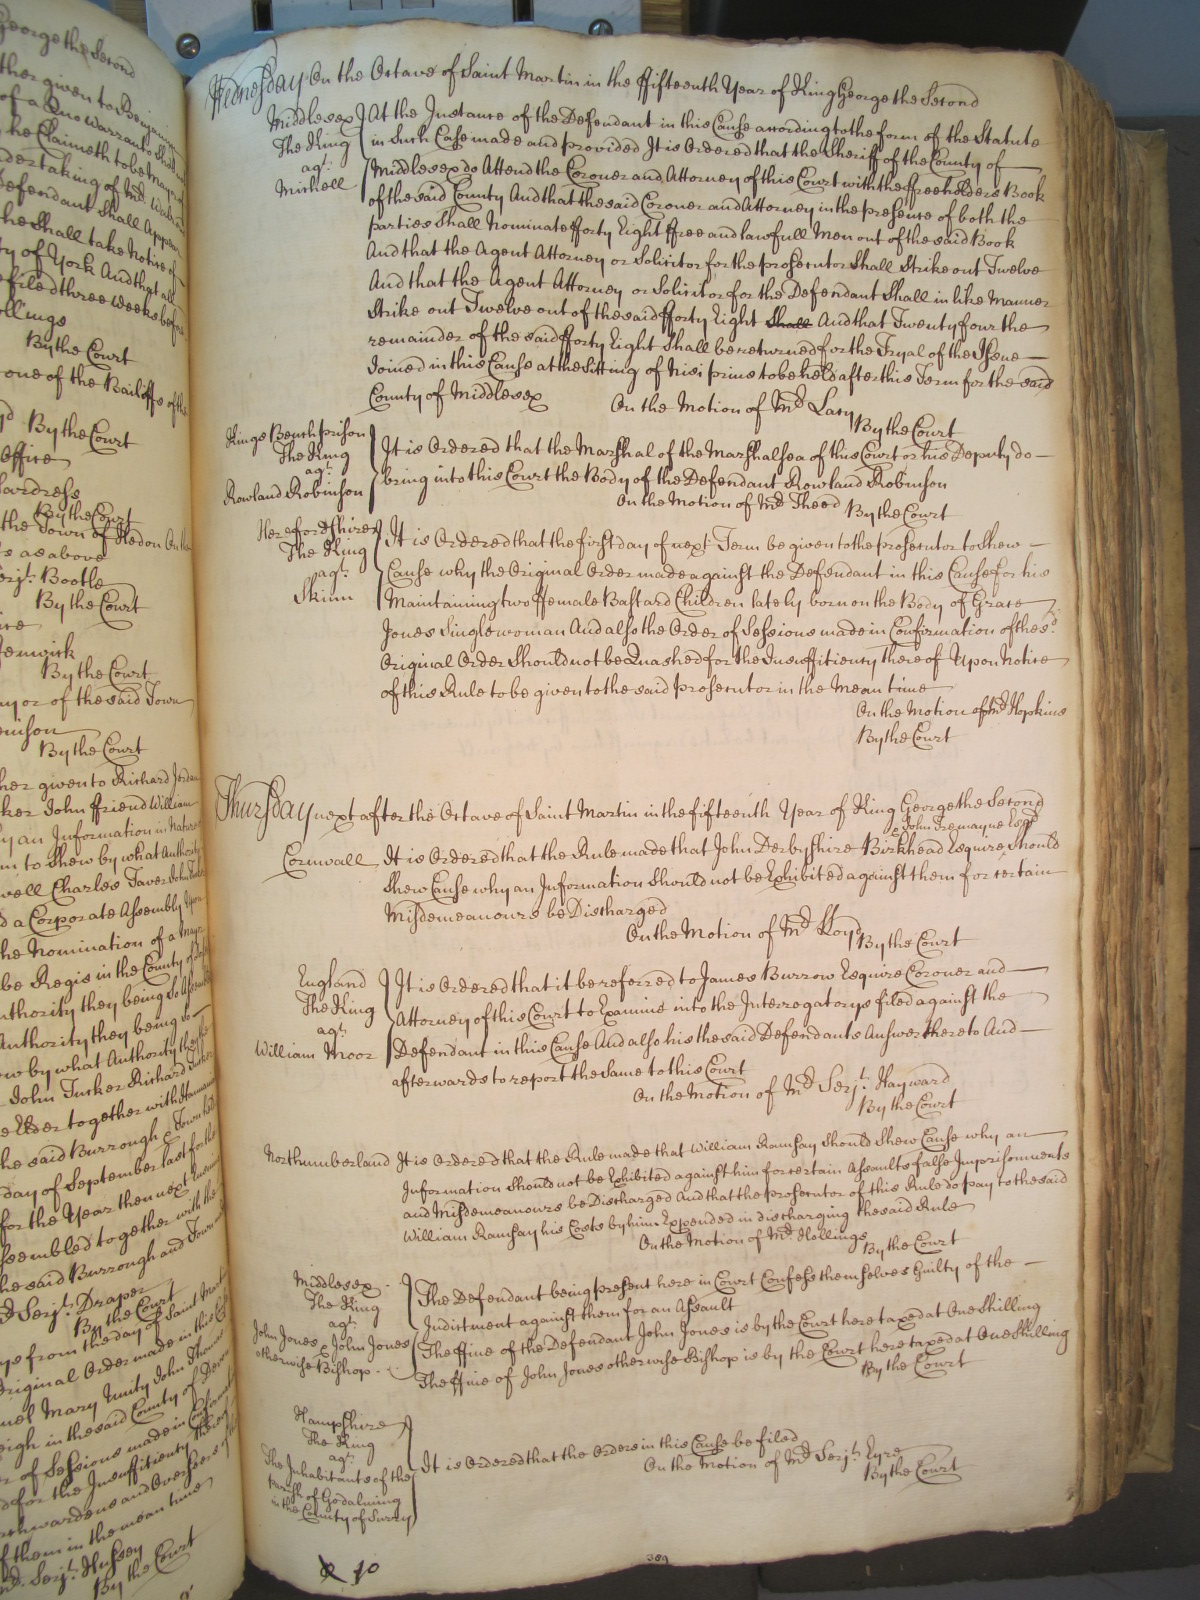 George the Second
ther given to Benjamin
of a Quo Warranto Shall
he Claimeth to be Mayor of
dertaking of Mr. Walter
Defendant Shall Appear
he Shall take Notice of
ty of York And that all
filed three Weeks before
ollings
By the Court
one of the Bailiffs of the
By the Court
Office
ardress
By the Court
the Town of Hedon On the
s as above
Serjt. Bootle
By the Court
enwick
By the Court
ayor of the said Town
enison
By the Court
her given to Richard Jordan
ker John ffriend William
y an Information in Nature
m to Shew by what Authority
well Charles Taver John
d a Corporate Assembly Upon
he Nomination of a Mayor
be Regis in the County of
uthority they being So Assembled
Authority they being so
ew by what Authority they
John Tucker Richard Tucker
e Elder together with
he said Burrough & Town
day of September last for the
for the Year then next
ssembled together with the
he said Burrough and Town
Serjt. Draper
By the Court
ys from the day of Saint Martin
Original Order made in this
uel Mary Unity John Thomas
eigh in the said County of Devon
r of Sessions made in Confirmation
d for the Insufficiency thereof
rchwardens and Overseers of the
f them in the mean time
Serjt. Hussey
By the Court
Wednesday On the Octave of Saint Martin in the ffifteenth Year of King George the Second
Middlesex
The King
agt.
Michell
At the Instance of the Defendant in this Cause according to the form of the Statute
in Such Case made and provided It is Ordered that the Sheriff of the County of
Middlesex do Attend the Coroner and Attorney of this Court with the ffreeholders Book
of the said County And that the said Coroner and Attorney in the presence of both the
parties Shall Nominate fforty Eight ffree and lawfull Men out of the said Book
And that the Agent Attorney or Solicitor for the prosecutor Shall Strike out Twelve
And that the Agent Attorney or Solicitor for the Defendant Shall in like Manner
Strike out Twelve out of the said fforty Eight Shall And that Twenty four the
remainder of the said fforty Eight Shall be returned for the Tryal of the Issue
Joined in this Cause at the Sitting of Nisi prius to be held after this Term for the said
County of Middlesex
On the Motion of Mr. Lacy
By the Court
Kings Bench prison
The King
agt.
Rowland Robinson
It is Ordered that the Marshal of the Marshalsea of this Court or his Deputy do
bring into this Court the Body of the Defendant Rowland Robinson
On the Motion of Mr. Theed By the Court
Herefordshire
The King
agt.
Skinn
It is Ordered that the first day of next Term be given to the prosecutor to Shew
Cause why the Original Order made against the Defendant in this Cause for his
Maintaining two ffemale Bastard Children lately born on the Body of Grace
Jones Singlewoman And also the Order of Sessions made in Confirmation of the sd.
Original Order Should not be Quashed for the Insufficiency thereof Upon Notice
of this Rule to be given to the said prosecutor in the Mean time
On the Motion of Mr. Hopkins
By the Court
Thursday next after the Octave of Saint Martin in the fifteenth Year of King George the Second
& John Tremayne Esqr.
Cornwall It is Ordered that the Rule made that John Derbyshire Birkhead Esquire Should
Shew Cause why an Information Should not be Exhibited against them for certain
Misdemeanours be Discharged
On the Motion of Mr. Lloyd
By the Court
England
The King
agt.
William Moor
It is Ordered that it be referred to James Burrow Esquire Coroner and
Attorney of this Court to Examine into the Interrogatorys filed against the
Defendant in this Cause And also his the said Defendants Answer thereto And
afterwards to report the Same to this Court
On the Motion of Mr. Serjt. Hayward
By the Court
Northumberland It is Ordered that the Rule made that William Ramsay Should Shew Cause why an
Information Should not be Exhibited against him for certain Assaults false Imprisonments
and Misdemeanours be Discharged And that the prosecutor of this Rule do pay to the said
William Ramsay his Costs by him Expended in discharging the said Rule
On the Motion of Mr. Hollings
By the Court
Middlesex
The King
agt.
John Jones & John Jones
otherwise Bishop
The Defendant being present here in Court Confess themselves Guilty of the
Indictment against them for an Assault
The ffine of the Defendant John Jones is by the Court here taxed at One Shilling
The ffine of John Jones otherwise Bishop is by the Court here taxed at One Shilling
By the Court
Hampshire
The King
agt.
The Inhabitants of the
parish of Godalming
in the County of Surry
It is Ordered that the Orders in this Cause be filed
On the Motion of Mr. Serjt. Eyre
By the Court
10
389